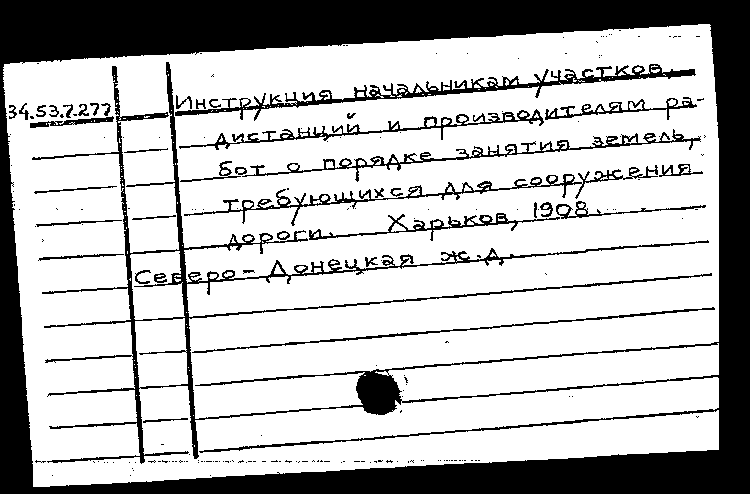 34.53.7.277 Инструкция начальникам участков,
дистанций и производителям ра-
бот о порядке занятия земель,
требующихся для сооружения
дороги. Харьков, 1908.
Северо-Донецкая ж.д.